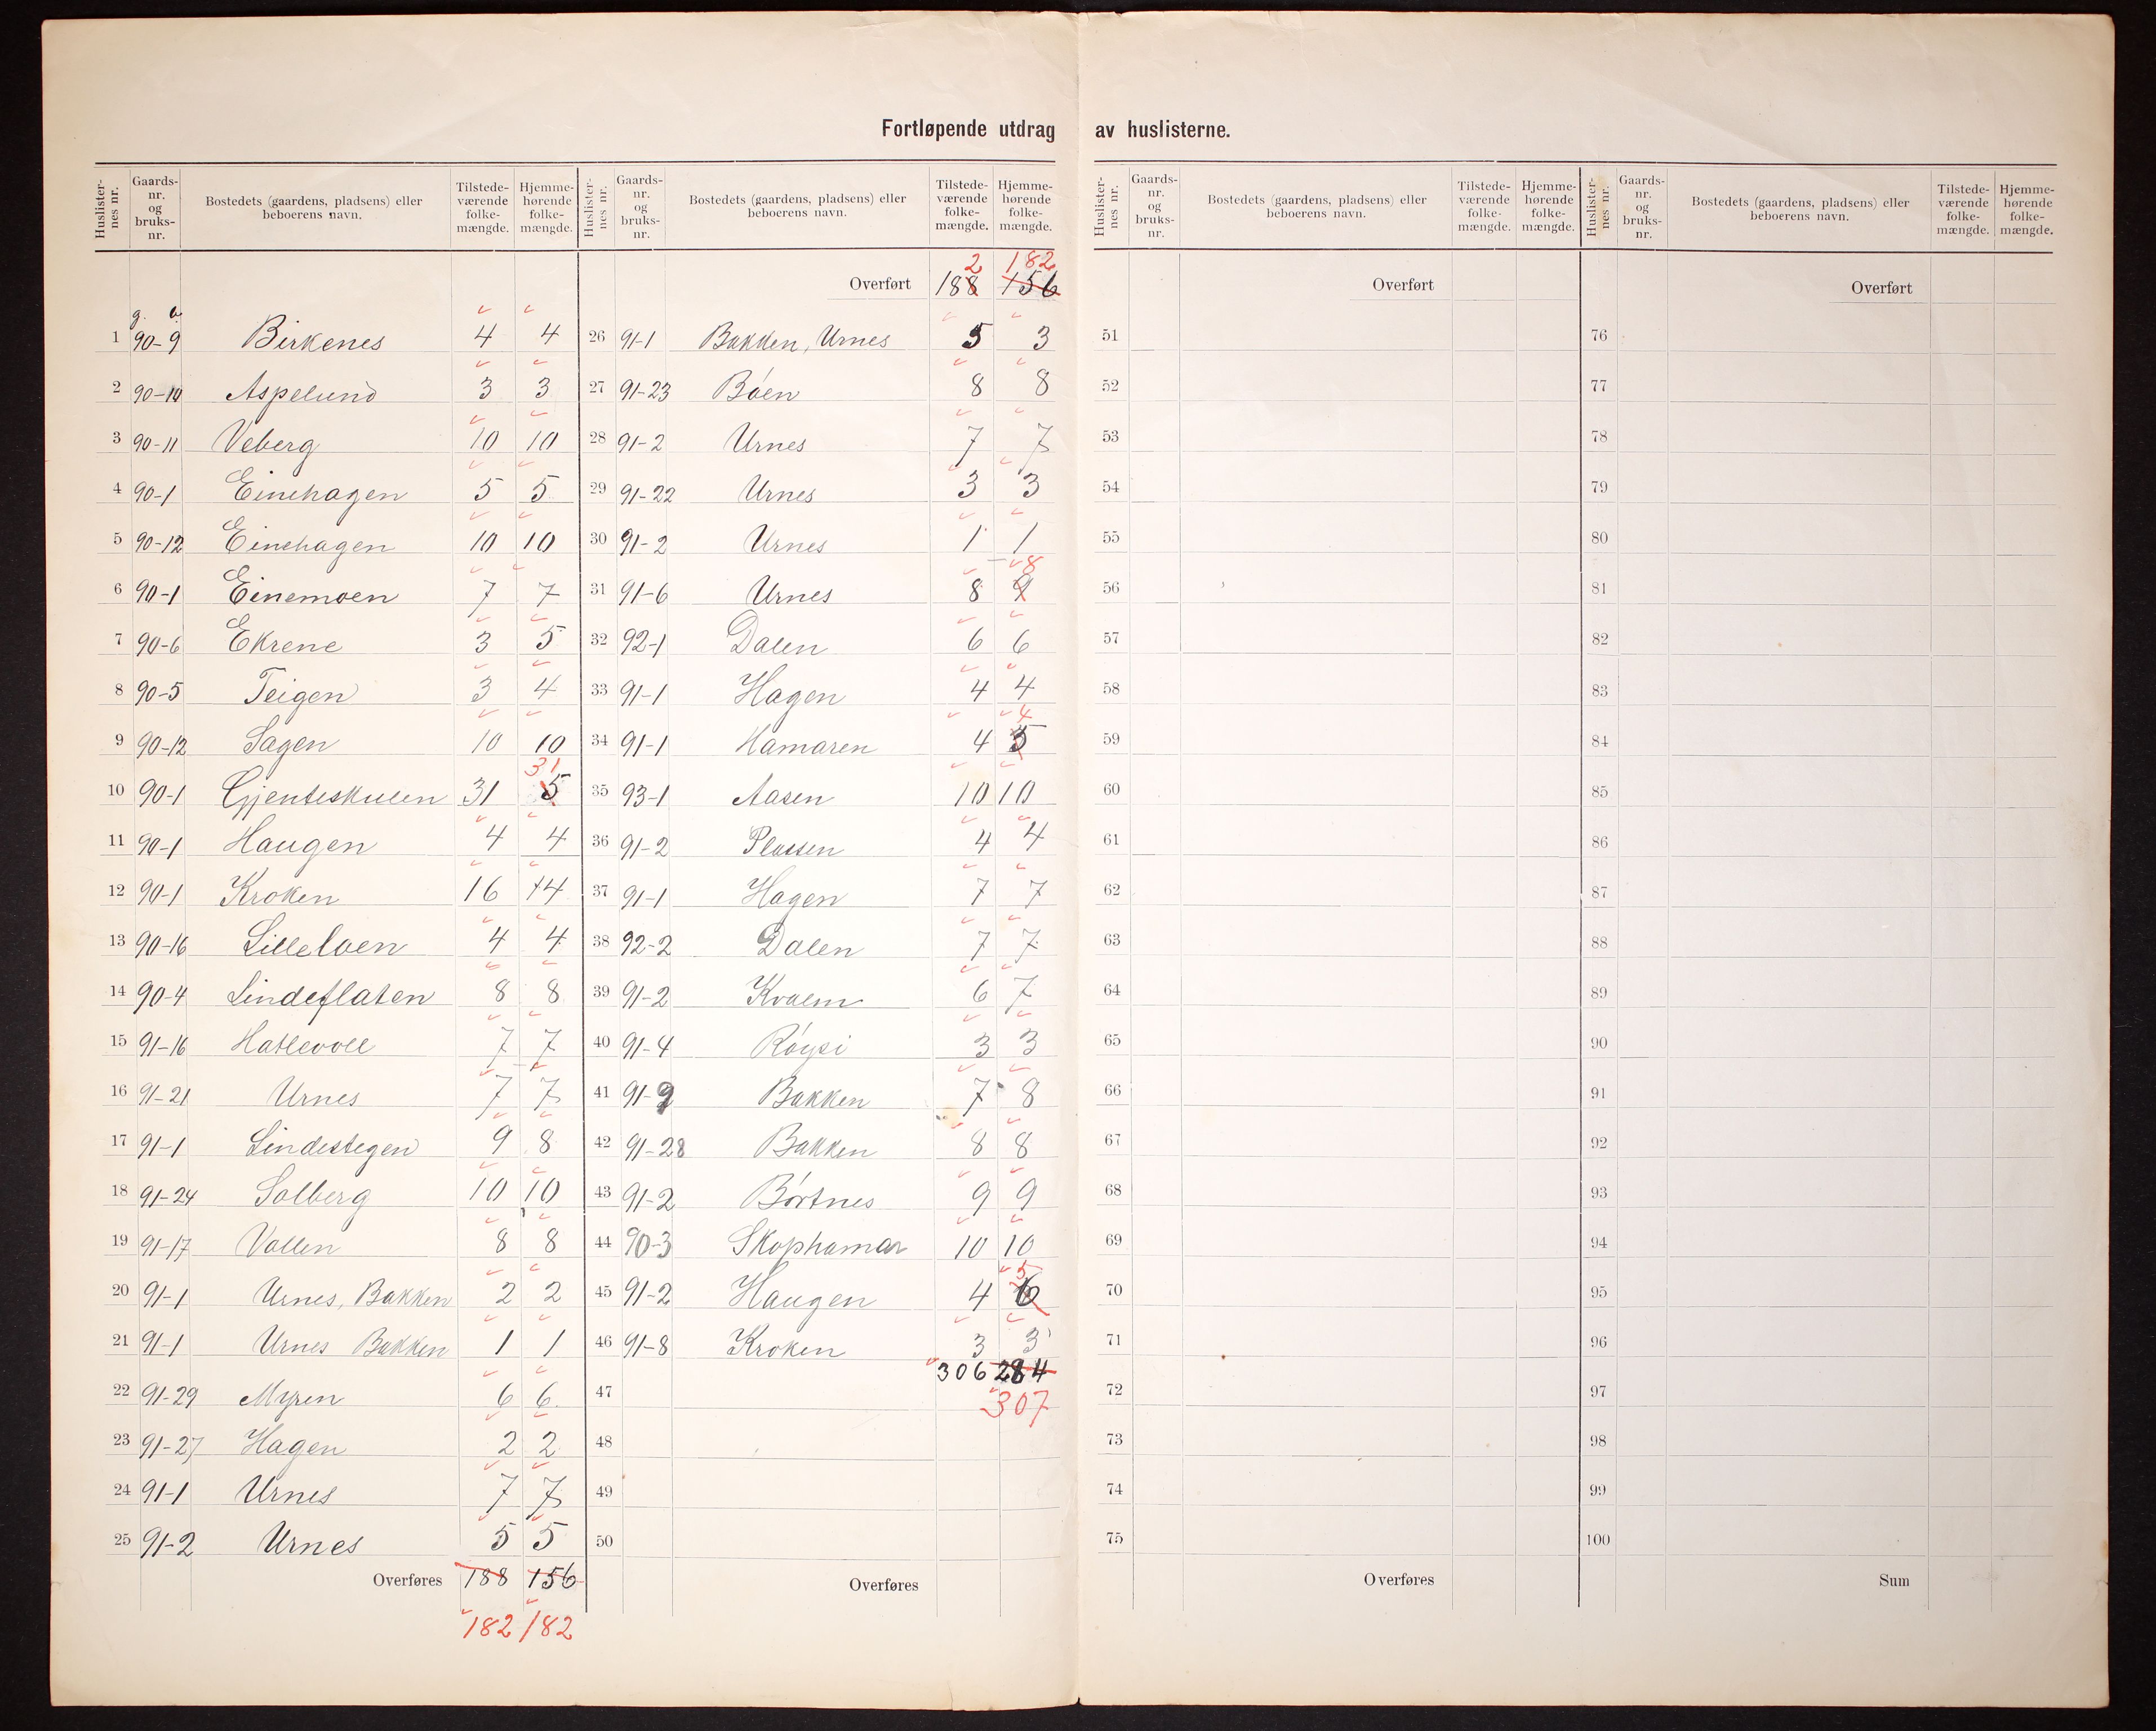 Fortløpende utdrag av huslisterne.
Huslister-nes nr. Gaards-nr. og bruks-nr. Bostedets (gaardens, pladsens) eller beboerens navn. Tilstede-værende folke-mængde. Hjemme-hørende folke-mængde.
g. b.
1 90-9 Birkenes 4 4
2 90-10 Aspelund 3 3
3 90-11 Veberg 10 10
4 90-1 Einehagen 5 5
5 90-12 Einehagen 10 10
6 90-1 Einemoen 7 7
7 90-6 Ekrene 3 5
8 90-5 Teigen 3 4
9 90-12 Sagen 10 10
10 90-1 Gjenteskulen 31 5 31
11 90-1 Haugen 4 4
12 90-1 Kroken 16 14
13 90-16 Lilleloen 4 4
14 90-4 Lindeflaten 8 8
15 91-16 Hatlevoll 7 7
16 91-21 Urnes 7 7
17 91-1 Lindestegen 9 8
18 91-24 Solberg 10 10
19 91-17 Vollen 8 8
20 91-1 Urnes, Bakken 2 2
21 91-1 Urnes Bakken 1 1
22 91-29 Myren 6 6
23 91-27 Hagen 2 2
24 91-1 Urnes 7 7
25 91-2 Urnes 5 5
Overføres 188 156
182 182
Huslister-nes nr. Gaards-nr. og bruks-nr. Bostedets (gaardens, pladsens) eller beboerens navn. Tilstede-værende folke-mængde. Hjemme-hørende folke-mængde.
2 182
Overført 188 156
26 91-1 Bakken, Urnes 5 3
27 91-23 Bóen 8 8
28 91-2 Urnes 7 7
29 91-22 Urnes 3 3
30 91-2 Urnes 1 1
31 91-6 Urnes 8 9 8
32 92-1 Dalen 6 6
33 91-1 Hagen 4 4
34 91-1 Hamaren 4 5 4
35 93-1 Aasen 10 10
36 91-2 Plassen 4 4
37 91-1 Hagen 7 7
38 92-2 Dalen 7 7
39 91-2 Kvaem 6 7
40 91-4 Róysi 3 3
41 91-9 Bakken 7 8
42 91-28 Bakken 8 8
43 91-2 Bórtnes 9 9
44 90-3 Skophamar 10 10
45 91-2 Haugen 4 6 5
46 91-8 Kroken 3 3
306 284
47 307
48
49
50
Overføres
Huslister-nes nr. Gaards-nr. og bruks-nr. Bostedets (gaardens, pladsens) eller beboerens navn. Tilstede-værende folke-mængde. Hjemme-hørende folke-mængde.
Overført
51
52
53
54
55
56
57
58
59
60
61
62
63
64
65
66
67
68
69
70
71
72
73
74
75
Overføres
Huslister-nes nr. Gaards-nr. og bruks-nr. Bostedets (gaardens, pladsens) eller beboerens navn. Tilstede-værende folke-mængde. Hjemme-hørende folke-mængde.
Overført
76
77
78
79
80
81
82
83
84
85
86
87
88
89
90
91
92
93
94
95
96
97
98
99
100
Sum